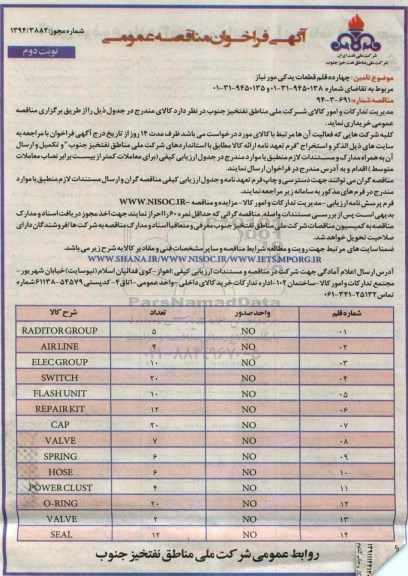 شماره مجوز: ۱۳۹۴/۳۸۸۲
آگهی فراخوان مناقصه عمومی
شرکت ملی نفت ایران
شرکت ملی مناطق نفت خیز جنوب
نوبت دوم
موضوع تامین: چهارده قلم قطعات یدکی مور نیاز
مربوط به تقاضای شماره ۹۴۵۰۱۳۸-۳۱-۰۱ و ۹۴۵۰۱۳۵-۳۱-۰۱
مناقصه شماره: ۶۹۱-۳-۹۴
مدیریت تدارکات و امور کالای شرکت ملی مناطق نفتخیز جنوب در نظر دارد کالای مندرج در جدول ذیل را از طریق برگزاری مناقصه
عمومی خریداری نماید.
کلیه شرکت هایی که فعالیت آن ها مرتبط با کالای مورد درخواست می باشد ظرف مدت ۱۴ روز از تاریخ درج آگهی فراخوان با مراجعه به
سایت های ذیل الذکر و استخراج "فرم تعهد نامه ارائه کالا مطابق با استانداردهای شرکت ملی مناطق نفتخیز جنوب" و تکمیل و ارسال
آن به همراه مدارک و مستندات لازم منطبق با موارد مندرج در جدول ارزیابی کیفی (برای معاملات کمتر از بیست برابر نصاب معاملات
متوسط) اقدام و به آدرس مندرج در فراخوان ارسال نمایند.
مناقصه گران می توانند جهت دسترسی و چاپ فرم تعهد نامه و جدول ارزیابی کیفی مناقصه گران و ارسال مستندات لازم منطبق با موارد
مندرج در فرم های مذکور به سامانه زیر مراجعه نمایند.
فرم پرسش نامه ارزیابی - مدیریت تدارکات و امور کالا - مزایده و مناقصه - WWW.NISOC.IR
بدیهی است پس از بررسی مستندات واصله، مناقصه گرانی که حداقل نمره ۶۰ را احراز نمایند جهت اخذ مجوز دریافت اسناد و مدارک
مناقصه به کمیسیون مناقصات شرکت ملی مناطق نفتخیز جنوب معرفی و متعاقبا اسناد و مدارک مناقصه به شرکت ها / فروشندگان دارای
صلاحیت تحویل خواهد شد.
ضمنا سایت های مرتبط جهت رویت و مطالعه شرایط مناقصه و سایر مشخصات فنی و مقادیر کالا به شرح زیر می باشد.
WWW.SHANA.IR/WWW.NISOC.IR/WWW.IETS.MPORG.IR
آدرس ارسال اعلام آمادگی جهت شرکت در مناقصه و مستندات ارزیابی کیفی: اهواز - کوی فدائیان اسلام (نیوسایت) خیابان شهریور -
مجتمع تدارکات و امور کالا - ساختمان ۱۰۲ - اداره تدارکات خرید کالای داخلی - واحد عمومی - اتاق ۴ - کدپستی ۵۴۵۷۹-۶۱۱۳۸ شماره
تماس: ۲۵۱۳۲-۳۴۱-۰۶۱
شماره قلم واحد صدور تعداد شرح کالا
۰۱ NO ۵ RADITOR GROUP
۰۲ NO ۴ AIR LINE
۰۳ NO ۱۰ ELEC GROUP
۰۴ NO ۲۰ SWITCH
۰۵ NO ۱۰ FLASH UNIT
۰۶ NO ۱۲ REPAIR KIT
۰۷ NO ۲۰ CAP
۰۸ NO ۷ VALVE
۰۹ NO ۶ SPRING
۱۰ NO ۶ HOSE
۱۱ NO ۴ POWER CLUST
۱۲ NO ۲۰ O-RING
۱۳ NO ۲ VALVE
۱۴ NO ۱۲ SEAL
روابط عمومی شرکت ملی مناطق نفتخیز جنوب
ParsNamadData